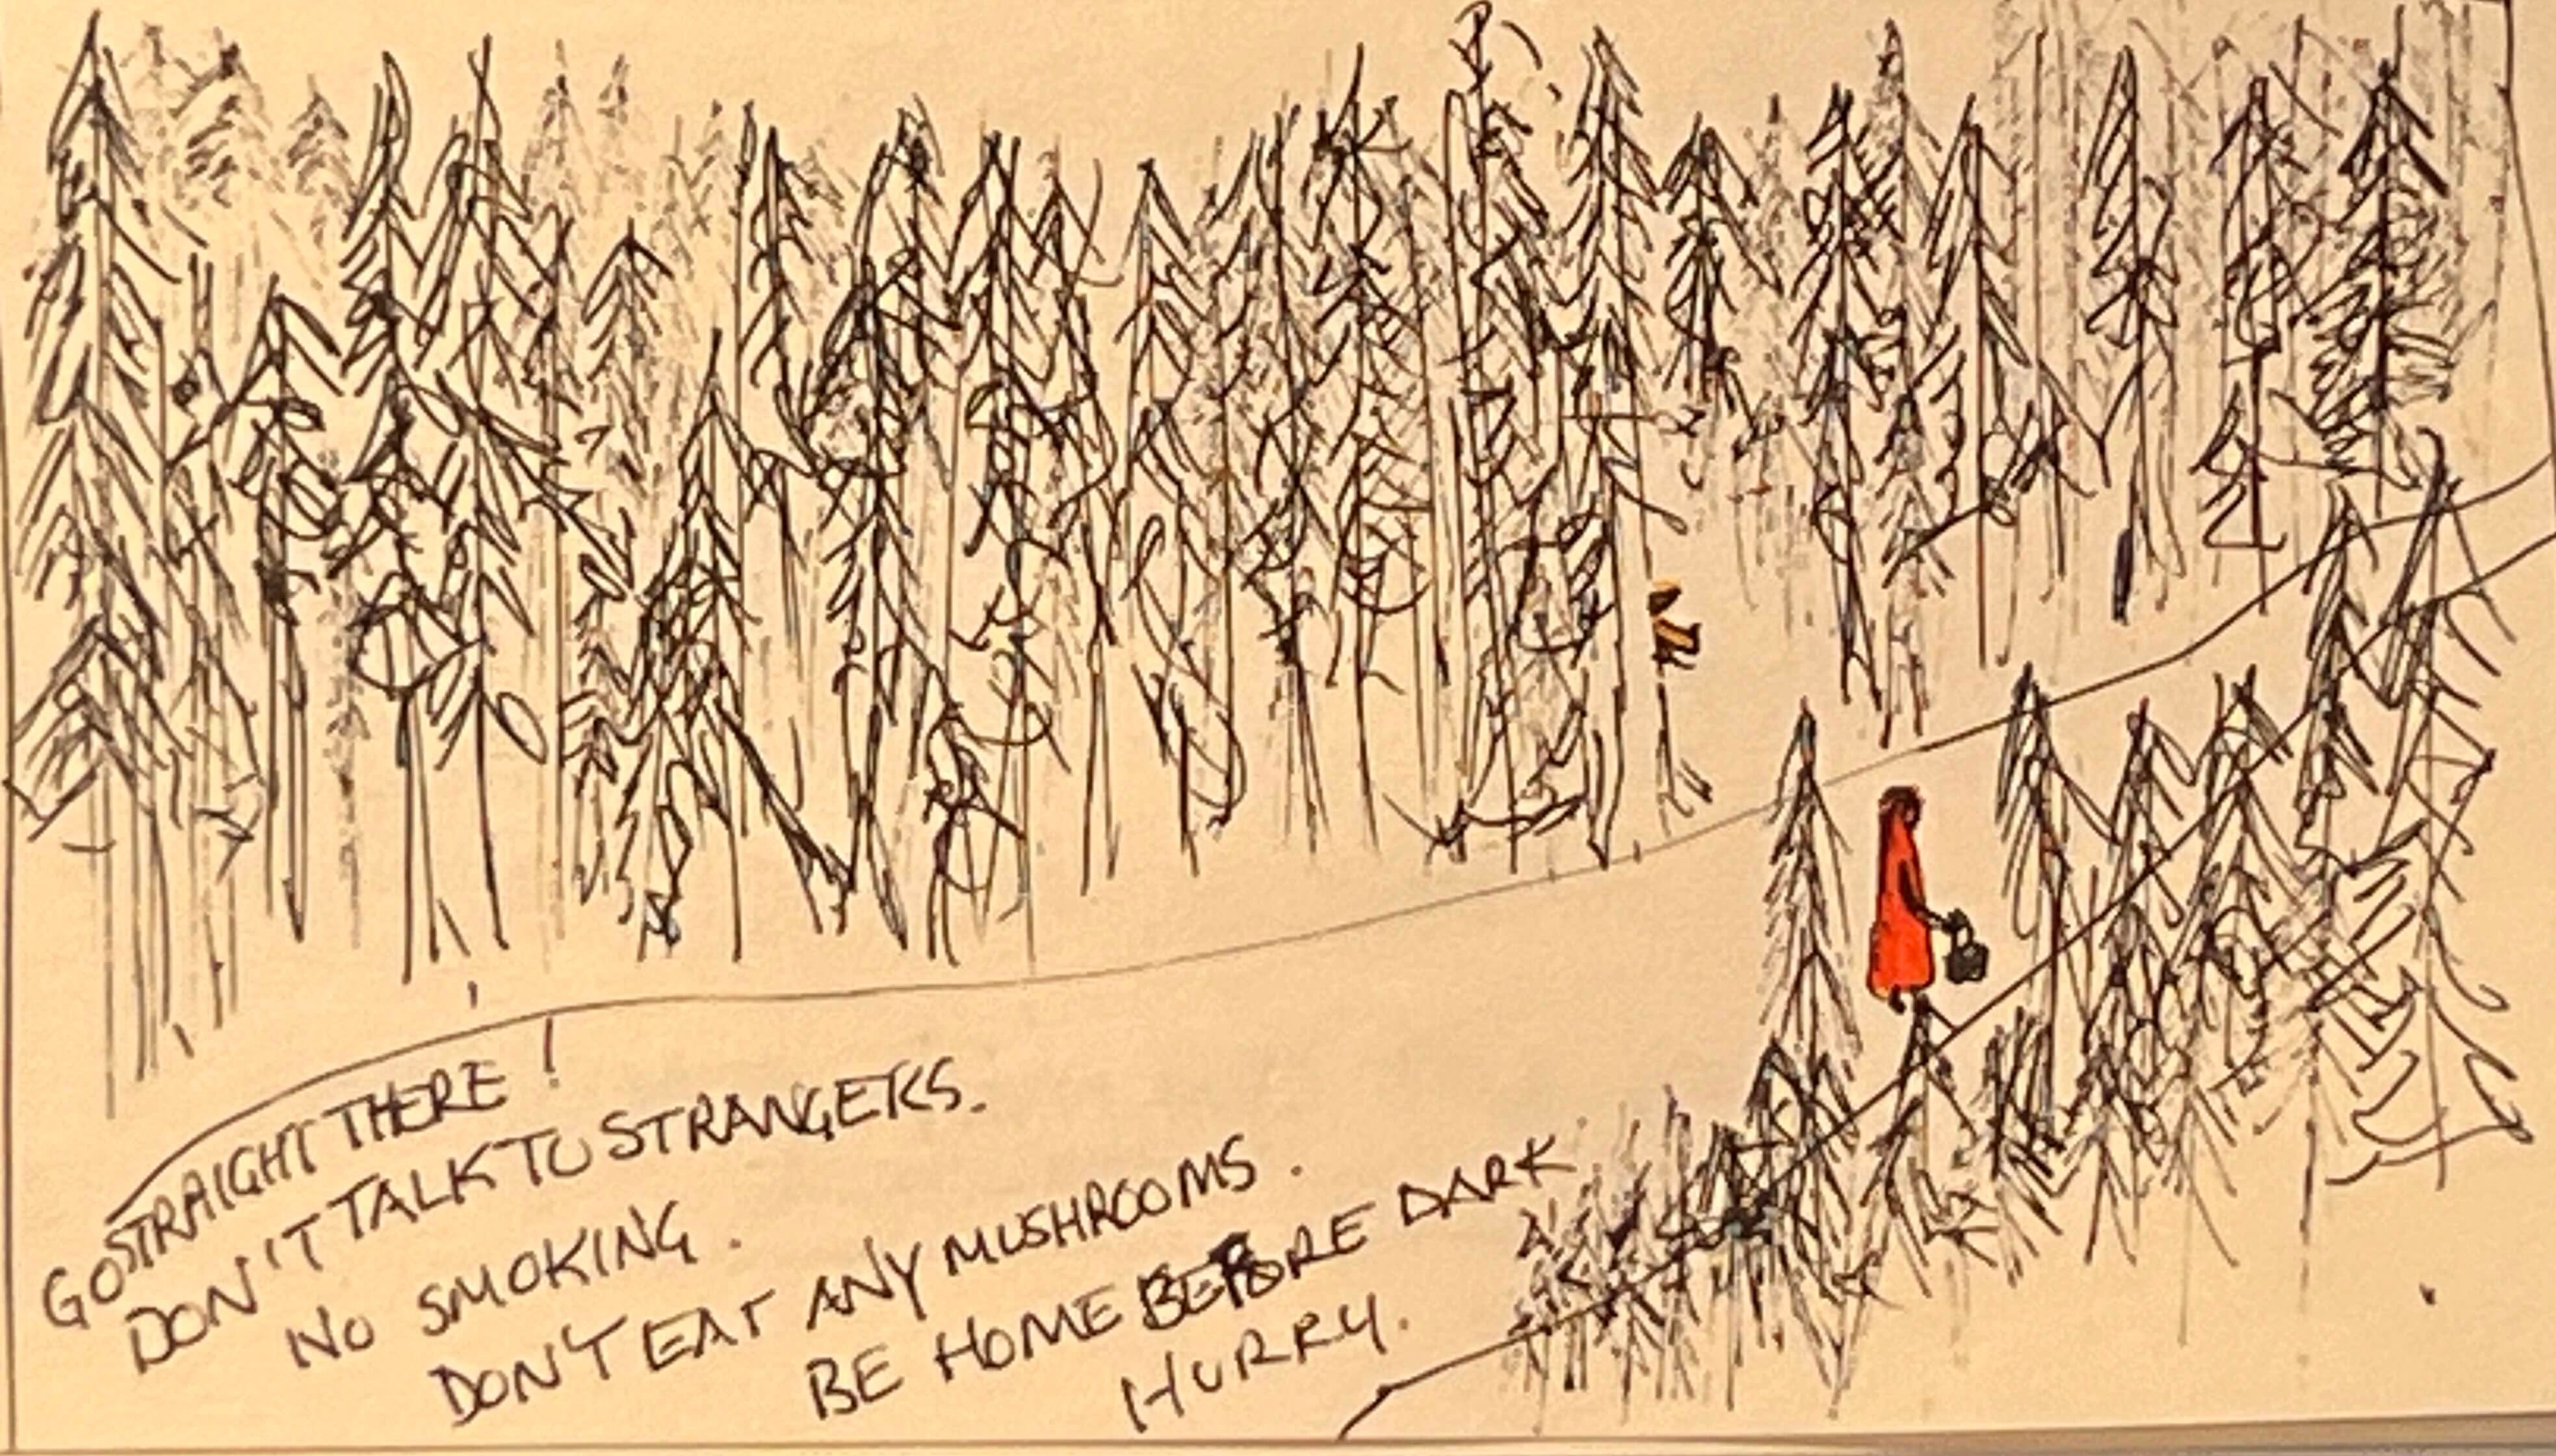 GO STRAIGHT THERE !
DON'T TALK TO STRANGERS.
NO SMOKING.
DON'T EAT ANY MUSHROOMS.
BE HOME BEFORE DARK
HURRY.